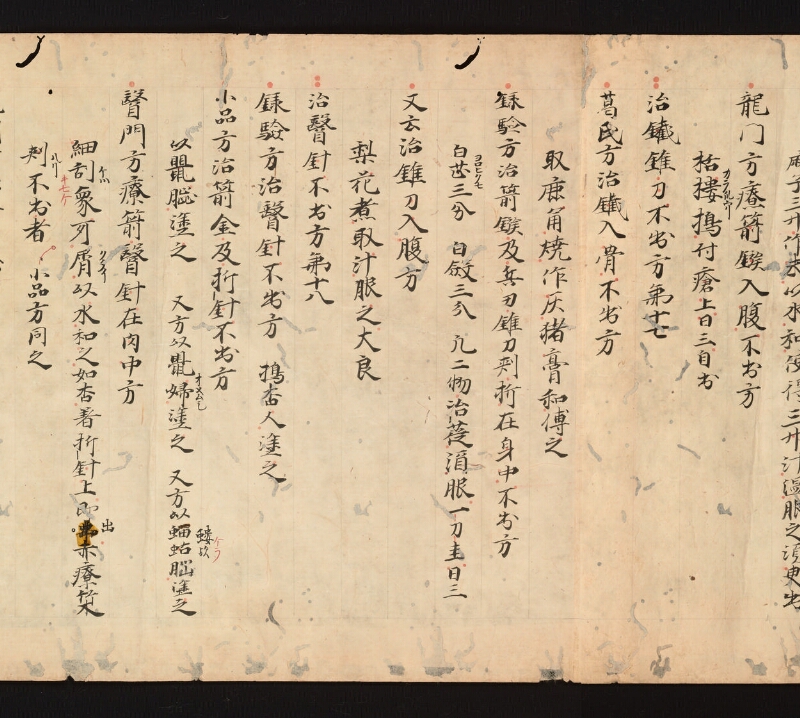 麻子三升作末以水和使得三升汁温服之須臾出
龍门方療箭鏃入腹不出方
栝樓搗付瘡上日三自出
治鐵錐刀不出方第十七
葛氏方治鐵入骨不出方
取鹿角燒作灰猪膏和傅之
録驗方治箭鏃及兵刃錐刀刾折在身中不出方
白芷三分 白斂三分 凡二物治莚湏服一刀圭日三
又云治錐刀入腹方
梨花煮取汁服之大良
治醫針不出方第十八
録驗方治醫針不出方 搗杏人塗之
小品方治箭金及折針不出方
以鼠脳塗之 又方以鼠婦塗之 又方以蝼蛄脳塗之
醫門方療箭醫針在肉中方
細刮象牙屑以水和之如杏著折針上即出亦療葉
刾不出者 小品方同之